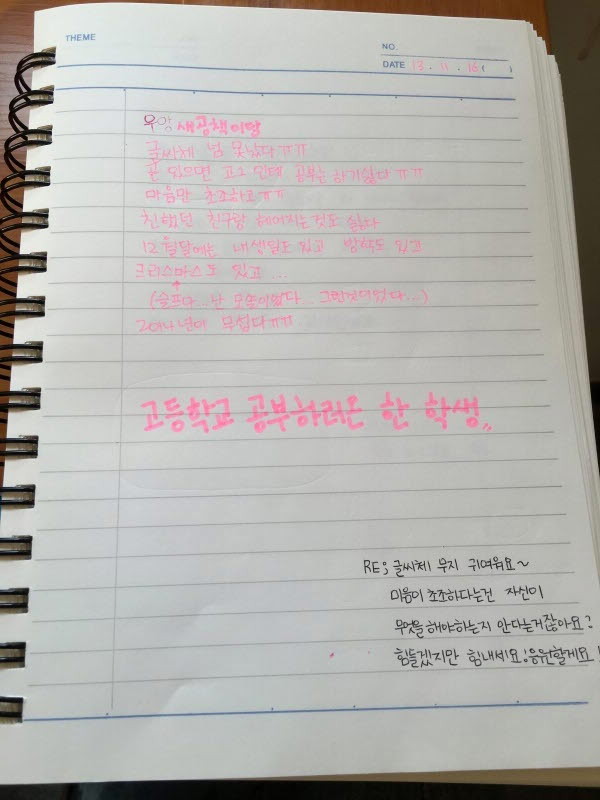 THEME
NO.
DATE 13 . 11 . 16 ( )
우왕 새공책이당
글씨체 넘 못났다 ㅠㅠ
곧 있으면 고1 인데 공부는 하기싫다 ㅠㅠ
마음만 초조하고 ㅠㅠ
친했던 친구랑 헤어지는것도 싫다
12월달에는 내생일도 있고 방학도 있고
크리스마스도 있고 ...
(슬프다... 난 모쏠이였다... 그런것이였다...)
2014년이 무섭다 ㅠㅠ
고등학교 공부하러온 한 학생〃
RE; 글씨체 무지 귀여워요~
마음이 초조하다는건 자신이
무엇을 해야하는지 안다는거잖아요?
힘들겠지만 힘내세요! 응원할게요!